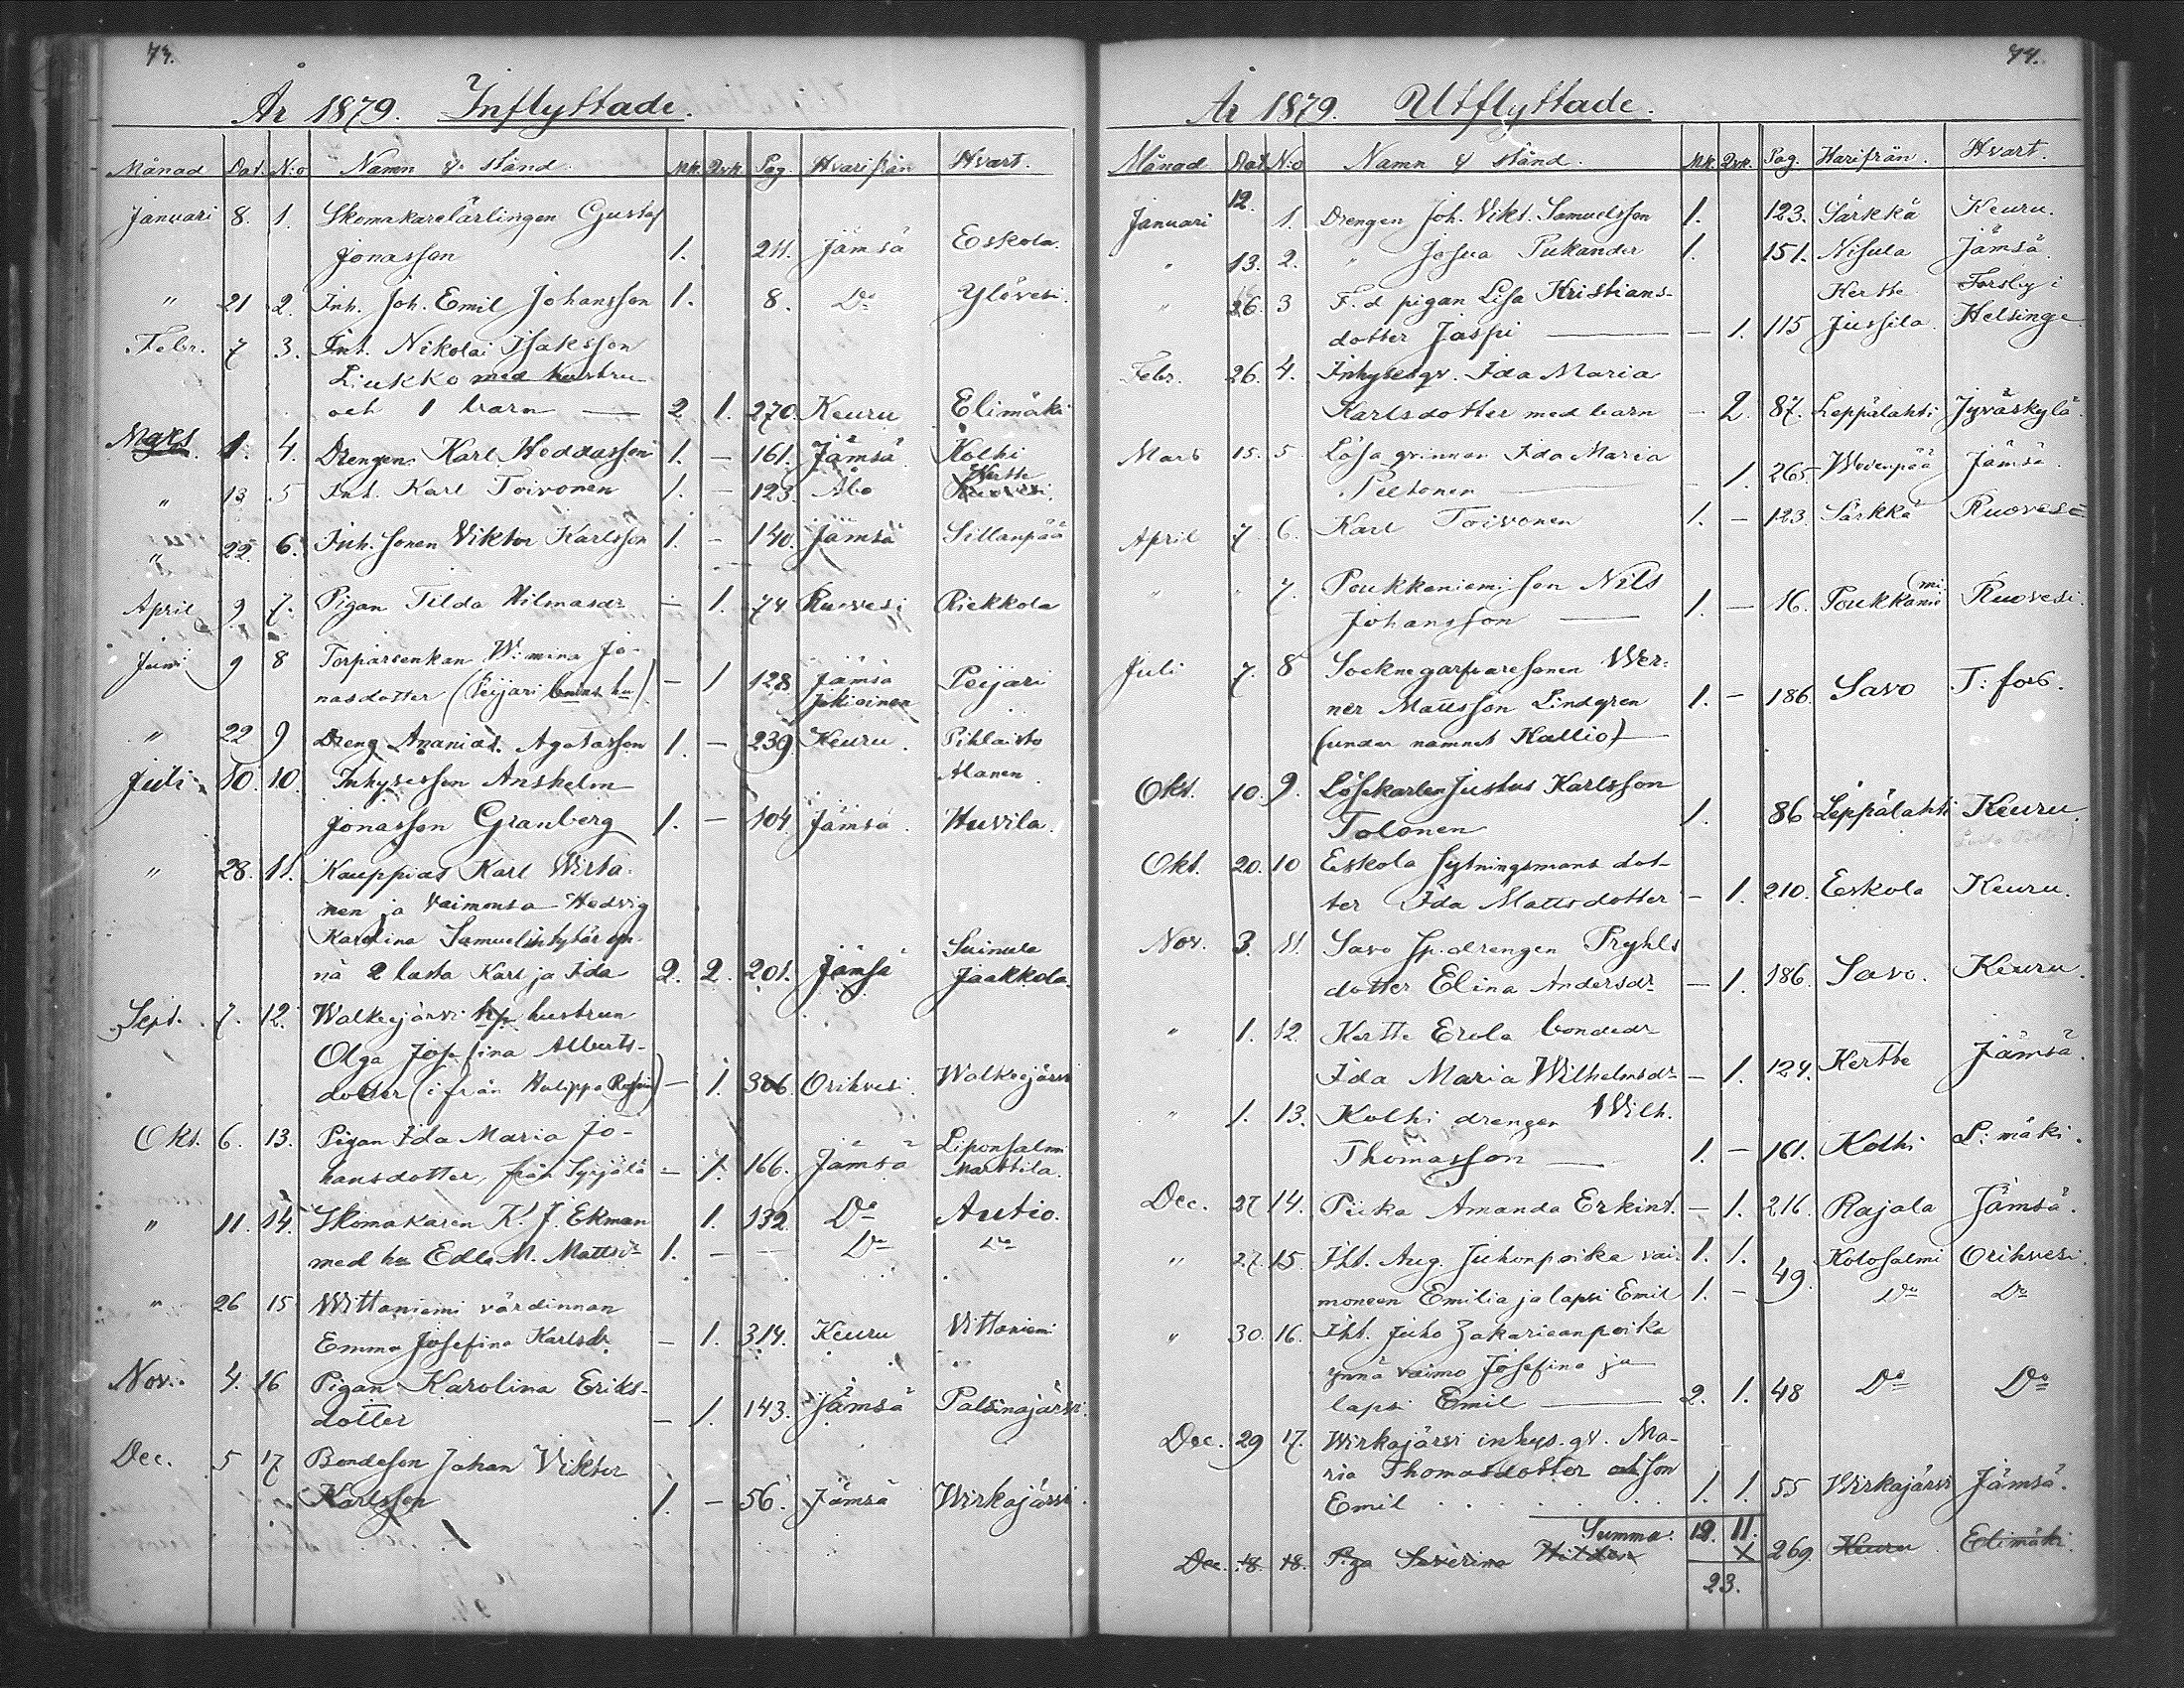 73.
År 1879. Inflyttade.
Månad Dat. N:o Namn & stånd. Mk. Qvk. Pag. Hvarifrån Hvart.
Januari 8. 1. Skomakarelärlingen Gustaf
Jonasson 1. 211. Jämsä Eskola.
" 21 2. Inh. Joh. Emil Johansson 1. 8. Do Ylövesi.
Febr. 7 3. Inh. Nikolai Isaksson
Liukko med hustru
och 1 barn — 2 1. 270. Keuru Elimäki
Mars 1. 4. Drengen Karl Heddasson 1. – 161. Jämsä Kolhi
Kertte
" 13 5 Inh. Karl Toivonen 1. – 123. Åbo Ruovesi.
" 22. 6. Inh. sonen Viktor Karlsson 1. – 140. Jämsä Sillanpää
April 9 7. Pigan Tilda Hilmasdr – 1. 74 Ruovesi Riekkola
Juni 9 8 Torparenkan W:mina Jo-
nasdotter (Peijari hu) – 1 128 Jämsä Peijari
Jokioinen
" 22 9 Dreng Ananias Agatasson 1. – 239 Keuru. Pihlaisto
Juli 10. 10. Inhysesson Anshelm Alanen
Jonasson Granberg 1. – 104 Jämsä. Huvila.
" 28. 11. Kauppias Karl Wirta-
nen ja vaimonsa Hedvig
Karolina Samuelintytär yn-
nä 2 lasta Karl ja Ida 2. 2. 201. Jämsä Suinula
Jaakkola.
Sept. 7. 12. Walkejärvi hustrun
Olga Josefina Alberts-
dotter (ifrån Hulippa) – 1. 306 Orihvesi Walkejärvi
Okt. 6. 13. Pigan Ida Maria Jo-
hansdotter, från Syrjälä – 1. 166. Jämsä Liponsalmi
Marttila.
" 11. 14. Skomakaren K. J. Ekman 1. 132. Do Autio.
med hu Edla M. Mattsdr 1. – – Do Do
" 26 15 Wittaniemi värdinnan
Emma Josefina Karlsdr. – 1. 314. Keuru Vittaniemi
Nov. 4. 16 Pigan Karolina Eriks-
dotter – 1. 143. Jämsä Palsinajärvi.
Dec. 5 17 Bondeson Johan Viktor
Karlsson 1. – 56. Jämsä Wirkajärvi.
74.
År 1879. Utflyttade.
Månad Dat. N:o Namn & stånd. Mk. Qvk. Pag. Harifrån. Hvart.
Januari 12. 1. Drengen Joh. Vikt. Samuelsson 1. 123. Särkkä Keuru.
" 13. 2. " Josua Pukander 1. 151. Nisula Jämsä.
" 26. 3 F.d pigan Lisa Kristians- Kertte Forsby i
dotter Jaspi — – 1. 115 Jussila. Helsinge
Febr. 26. 4. Inhysesqv. Ida Maria
Karlsdotter med barn – 2. 87. Leppälahti Jyväskylä.
Mars 15. 5 Lösaqvinnan Ida Maria
Peltonen — 1. 265. Wovenpää Jämsä.
April 7 6. Karl Toivonen 1. – 123. Särkkä Ruovesi
" " 7. Poukkaniemi son Nils mi
Johansson — 1. – 16. Poukkanie Ruovesi.
Juli 7. 8 Socknegarfvaresonen Wer-
ner Mattsson Lindgren 1. – 186. Savo T:fors.
(under namnet Kallio)
Okt. 10. 9. Löskarlen Justus Karlsson
Tolonen 1. 86 Leppälahti Keuru.
Okt. 20. 10 Eskola sytningsmans dot-
ter Ida Mattsdotter – 1. 210. Eskola Keuru.
Nov. 3. 11. Savo sp.drengen Pryhls
dotter Elina Andersdr – 1. 186. Savo. Keuru.
" 1. 12. Kertte Erola bondedr
Ida Maria Wilhelmsdr – 1. 124. Kertte Jämsä.
" 1. 13. Kolhi drengen Wilh.
Thomasson — 1. – 161. Kolhi L:mäki.
Dec. 27 14. Piika Amanda Erkint. – 1. 216. Rajala Jämsä.
" 27. 15. Iht. Aug. Juhonpoika vai- 1. 1. Kolosalmi Orihvesi.
moneen Emilia ja lapsi Emil 1. – 49. Do Do
" 30. 16. Iht. Juho Zakarieanpoika
ynnä vaimo Josefina ja
lapsi Emil — 2. 1. 48 Do Do
Dec. 29 17. Wirkajärvi inhys.qv. Ma-
ria Thomasdotter och son
Emil . . . . . 1. 1. 55 Wirkajärvi Jämsä.
Summa. 12. 11.
Dec. 18. 18. Piga Saverina 269 Keuru. Elimäki.
23.